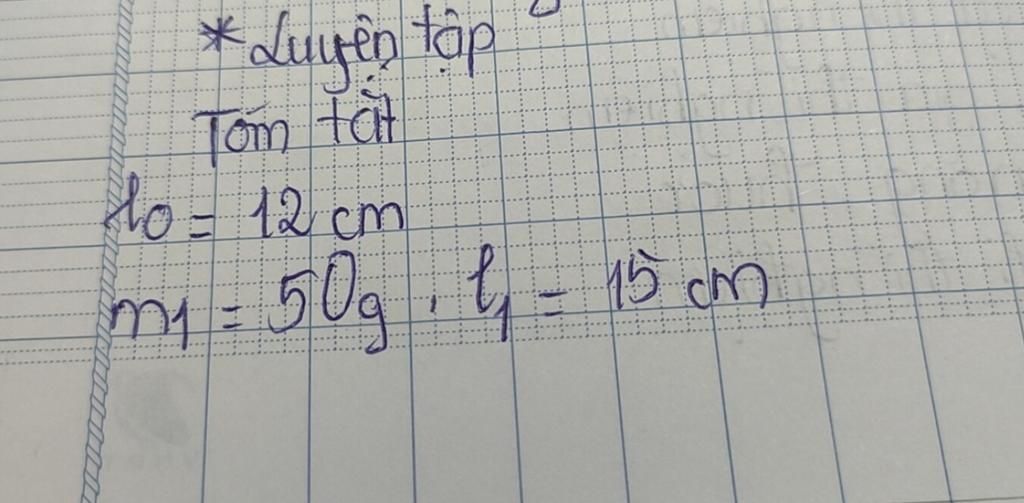 * Luyện tập
Tóm tắt
l0 = 12 cm
m1 = 50g, l1 = 15 cm